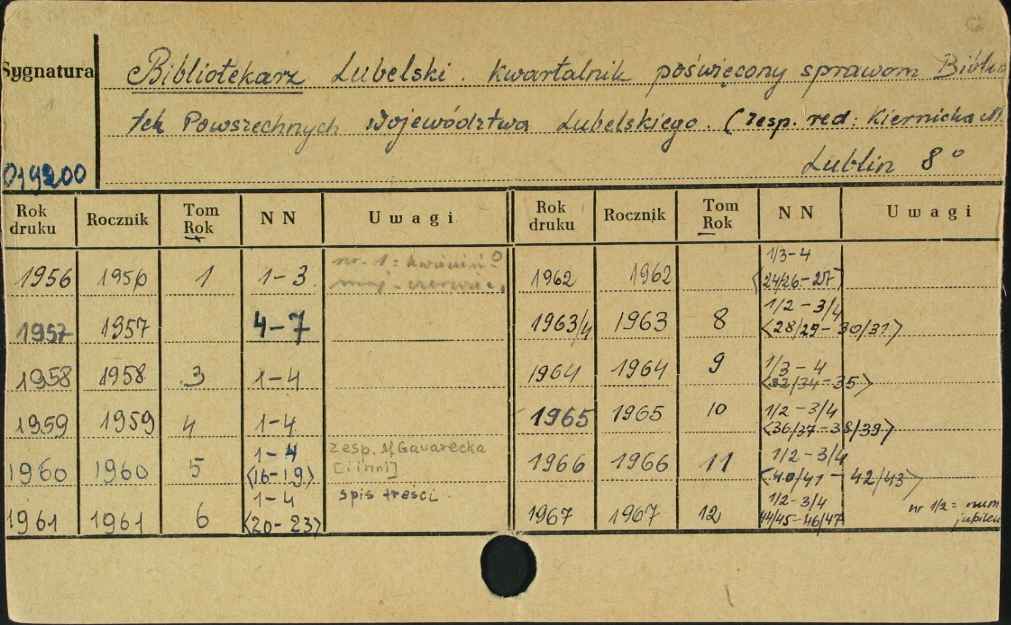 Sygnatura
Bibliotekarz Lubelski. Kwartalnik poświęcony sprawom Biblio
tek Powszechnych Województwa Lubelskiego. (zesp. red: Kiernicka M.
Lublin 8°
Rok druku Rocznik Tom Rok NN Uwagi Rok druku Rocznik Tom Rok NN Uwagi
1956 1956 1 1-3 nr. 1 = kwiecień 1962 1962 1/3-4 <24/26-27>
maj - czerwiec
1957 1957 4-7 1963/4 1963 8 1/2 - 3/4 <28/29 - 30/31>
1958 1958 3 1-4 1964 1964 9 1/3 - 4 <32/34-35>
1959 1959 4 1-4 1965 1965 10 1/2 - 3/4 <36/37-38/39>
1960 1960 5 1-4 <16-19> zesp. M. Gawarecka [i inni] 1966 1966 11 1/2 - 3/4 <40/41 - 42/43>
1961 1961 6 1-4 <20-23> spis treści. 1967 1967 12 1/2 - 3/4 44/45-46/47 nr 1/2 = num jubileu